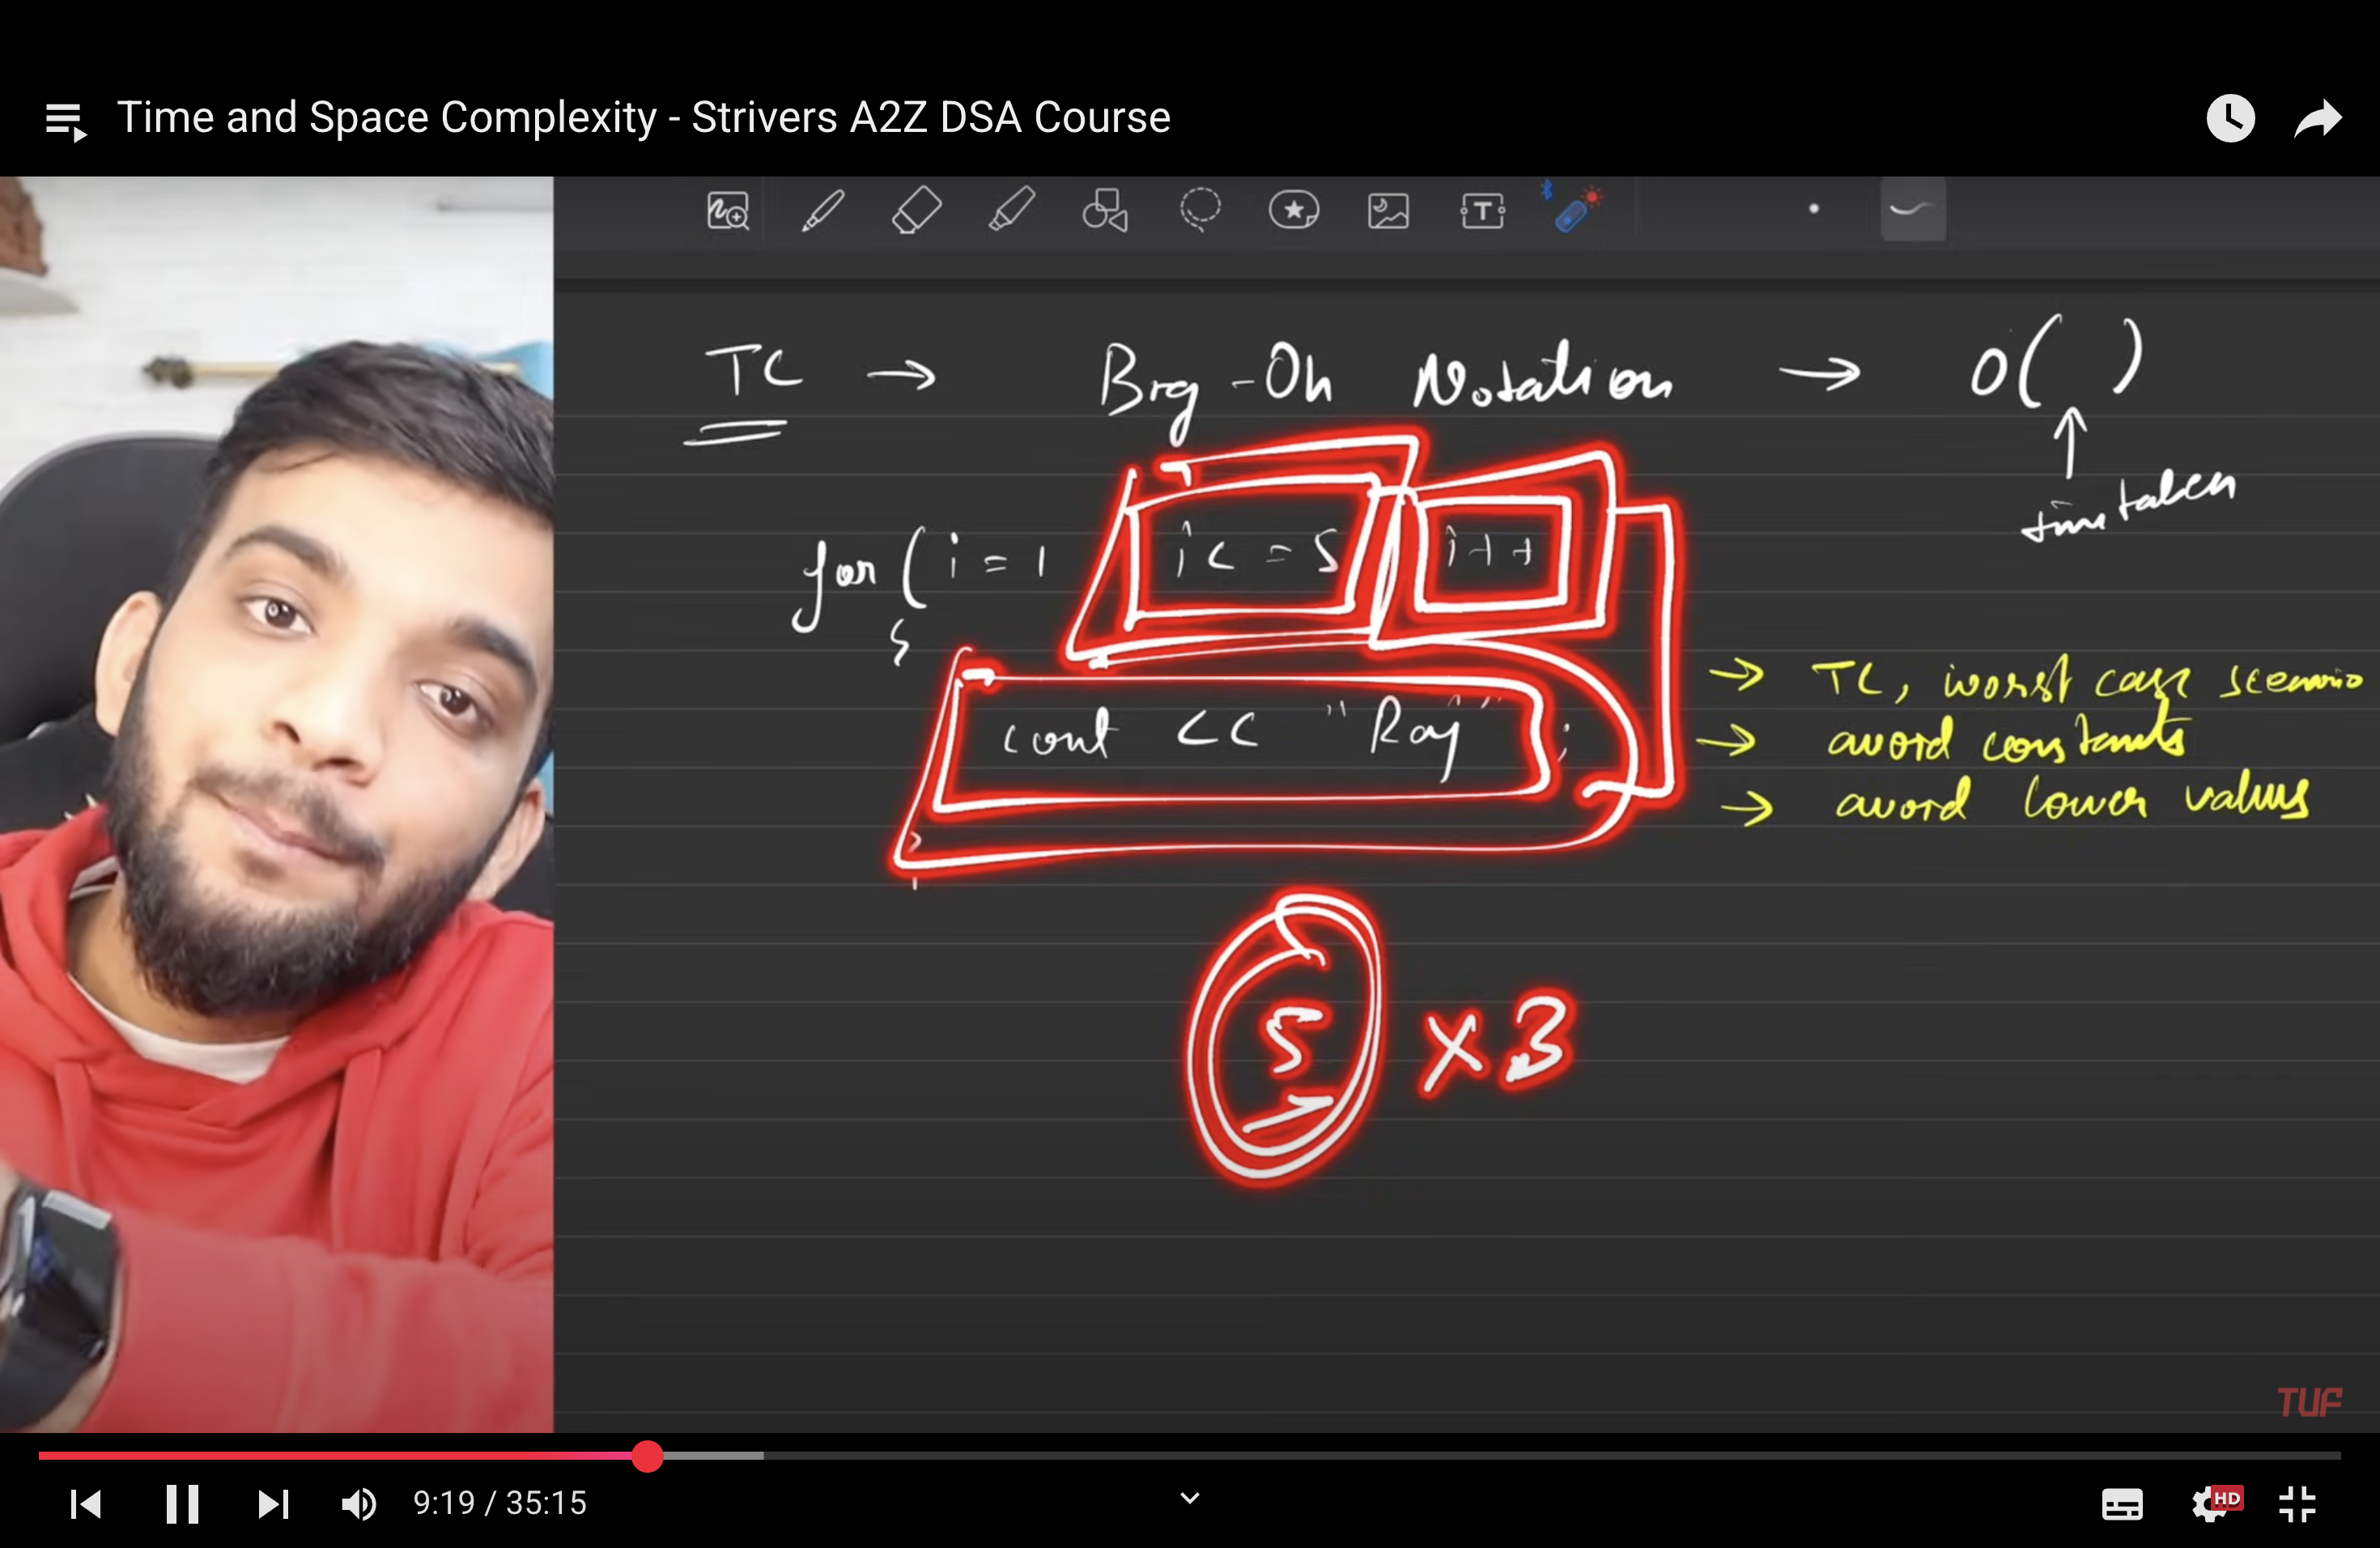 Time and Space Complexity - Strivers A2Z DSA Course
TC → Big-Oh Notation → O( )
↑
time taken
for ( i = 1 i <= 5 i++
{
cout << "Raj" ;
}
→ TC, worst case scenario
→ avoid constants
→ avoid lower values
5 x 3
TUF
9:19 / 35:15
HD